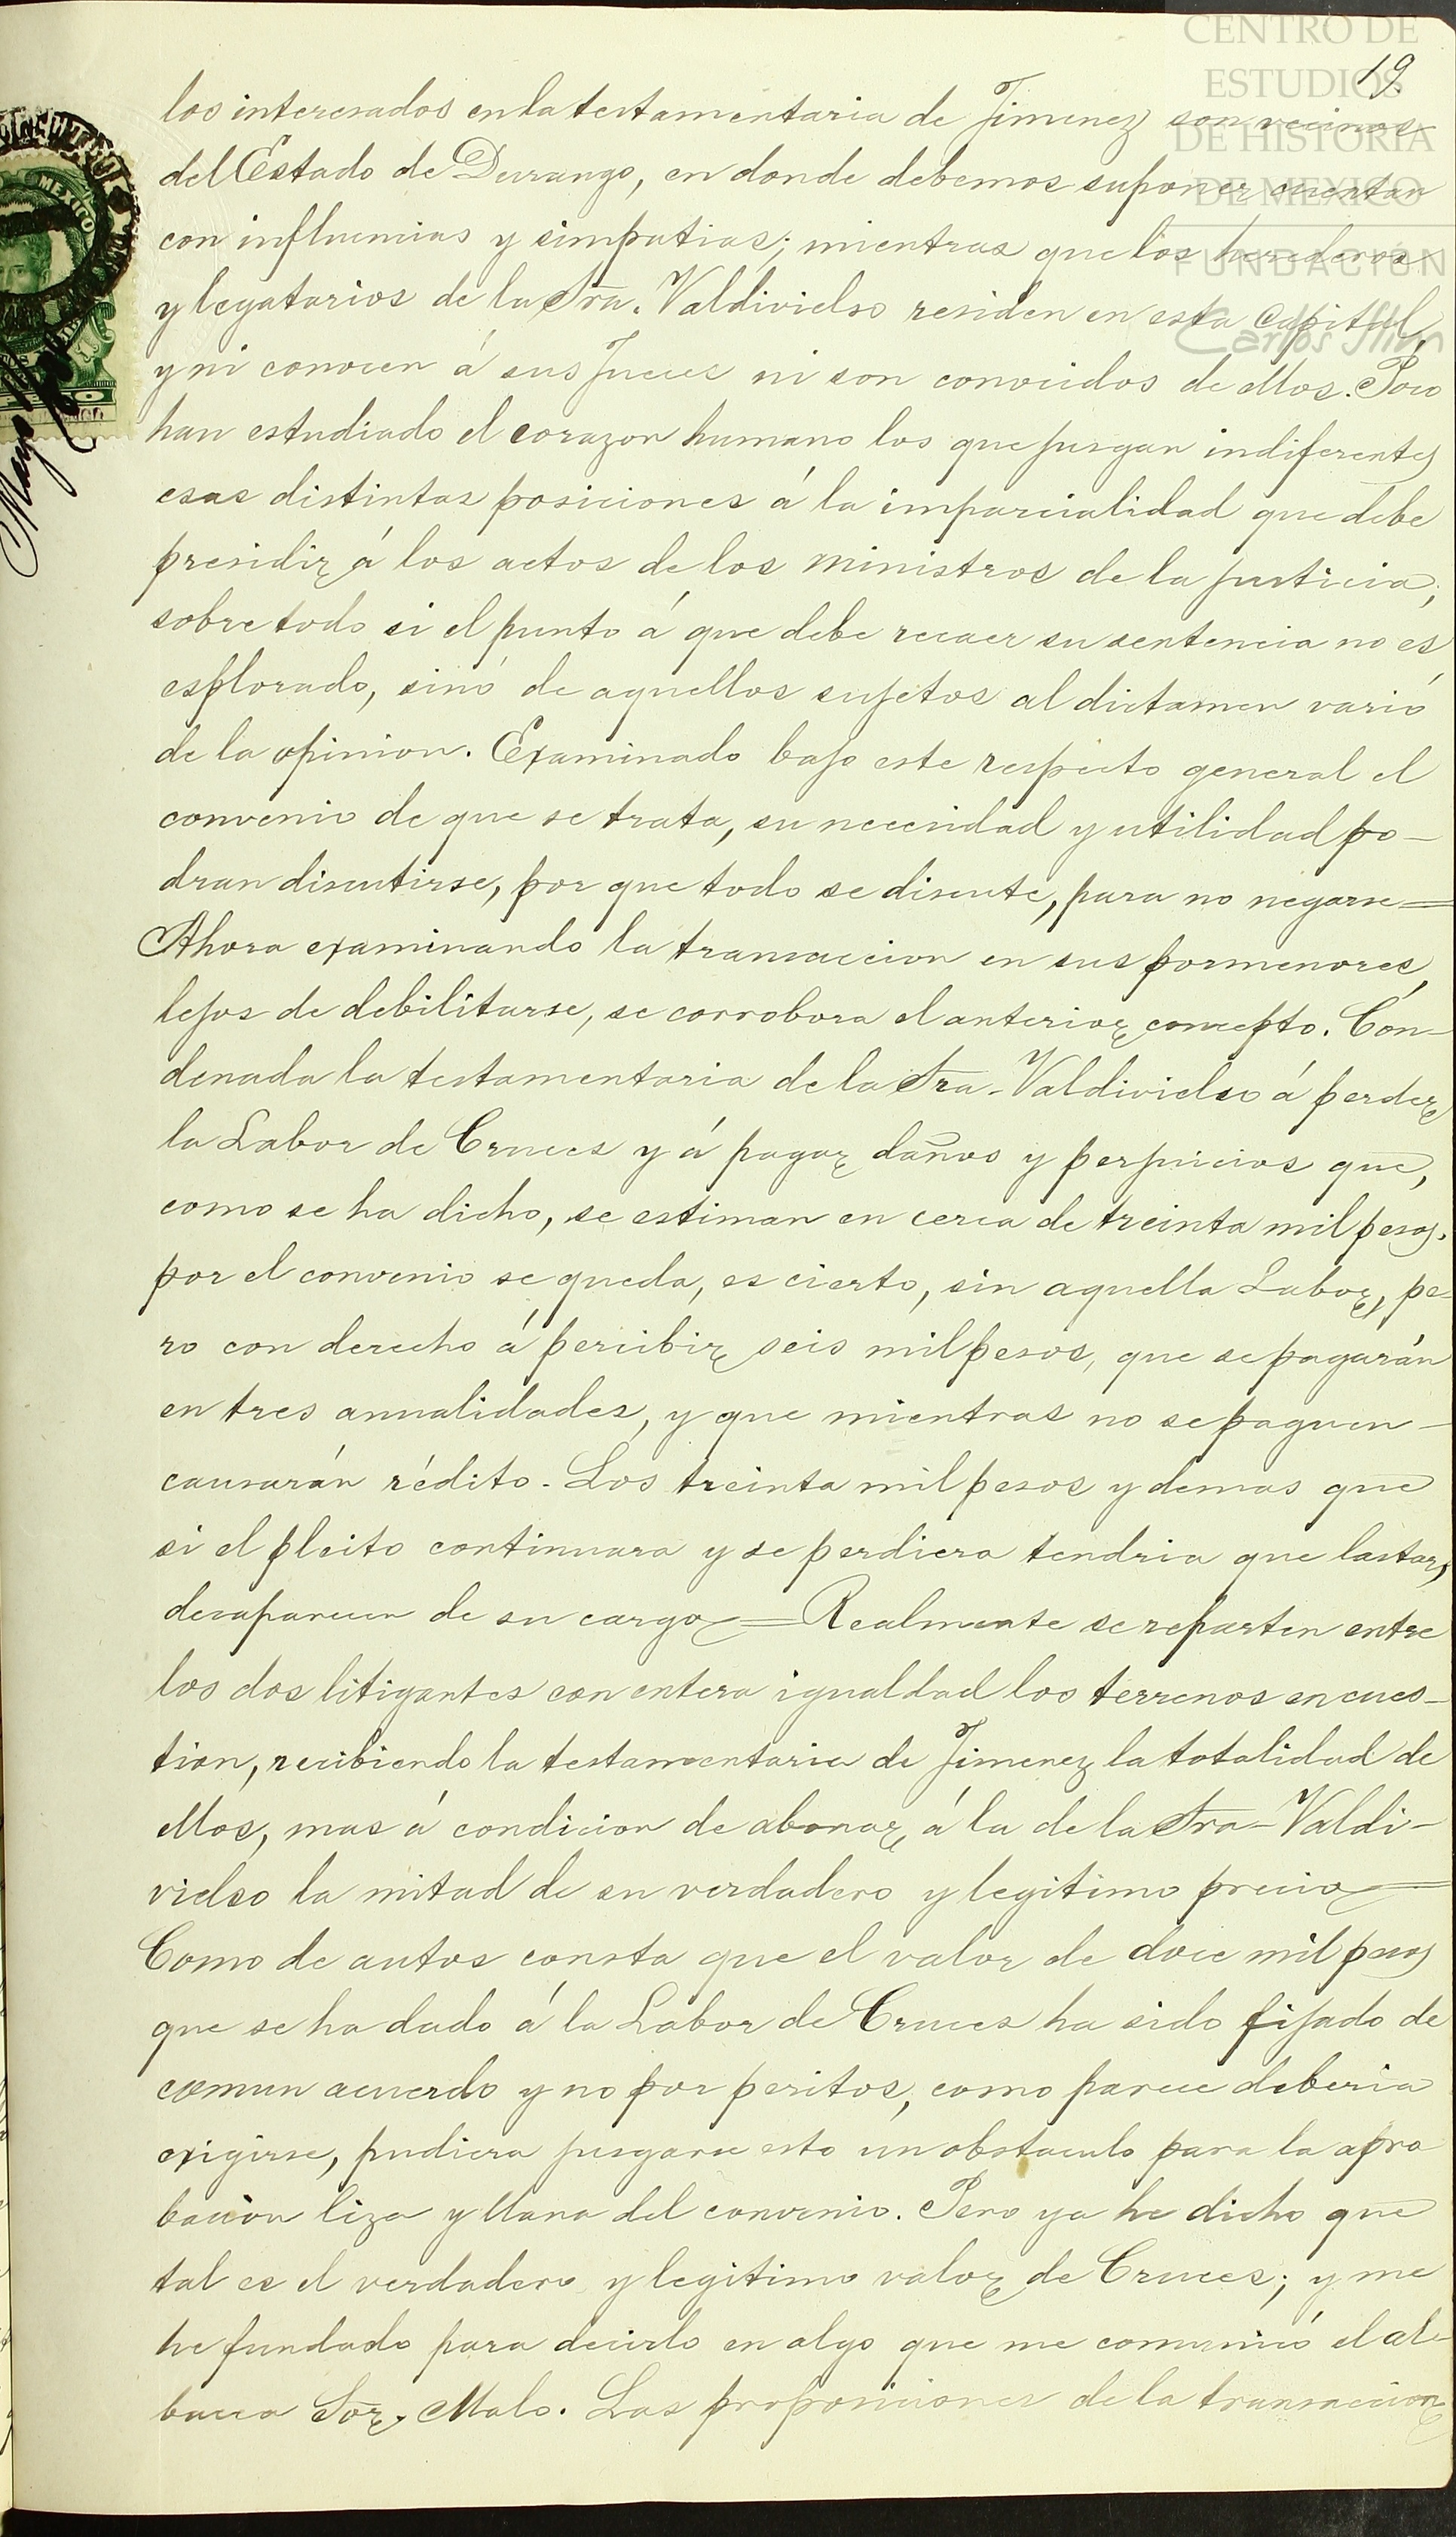 CENTRO DE
ESTUDIOS
DE HISTORIA
DE MEXICO
FUNDACIÓN
Carlos Slim
19.
MEXICO
Mayo
los interesados en la testamentaria de Jimenez son vecinos
del Estado de Durango, en donde debemos suponer cuentan
con influencias y simpatias; mientras que los herederos
y legatarios de la Sra. Valdivielso residen en esta Capital,
y ni conocen á sus Jueces ni son conocidos de ellos. Poco
han estudiado el corazon humano los que jusgan indiferentes
esas distintas posiciones á la imparcialidad que debe
presidir á los actos de los ministros de la justicia;
sobre todo si el punto á que debe recaer su sentencia no es
esplorado, sinó de aquellos sujetos al dictamen varió
de la opinion. Examinado bajo este respecto general el
convenio de que se trata, su necesidad y utilidad po-
dran discutirse, por que todo se discute, para no negarse=
Ahora examinando la transaccion en sus pormenores,
lejos de debilitarse, se corrobora el anterior concepto. Con-
denada la testamentaria de la Sra. Valdivielso á perder
la Labor de Cruces y á pagar daños y perjuicios que,
como se ha dicho, se estiman en cerca de treinta mil pesos.
por el convenio se queda, es cierto, sin aquella Labor, pe-
ro con derecho á percibir seis mil pesos, que se pagarán
en tres anualidades, y que mientras no se paguen-
causarán rédito. Los treinta mil pesos y demas que
si el pleito continuara y se perdiera tendria que lastar,
desaparecen de su cargo= Realmente se reparten entre
los dos litigantes con entera igualdad los terrenos en cues-
tion, recibiendo la testamentaria de Jimenez la totalidad de
ellos, mas á condicion de abonar á la de la Sra- Valdi-
vielso la mitad de su verdadero y legitimo precio=
Como de autos consta que el valor de doce mil pesos
que se ha dado á la Labor de Cruces ha sido fijado de
comun acuerdo y no por peritos, como parece deberia
exigirse, pudiera jusgarse esto un obstaculo para la apro
bacion liza y llana del convenio. Pero ya he dicho que
tal es el verdadero y legitimo valor de Cruces; y me
he fundado para decirlo en algo que me comunicó el al-
bacea Sor. Malo. Las proposiciones de la transaccion